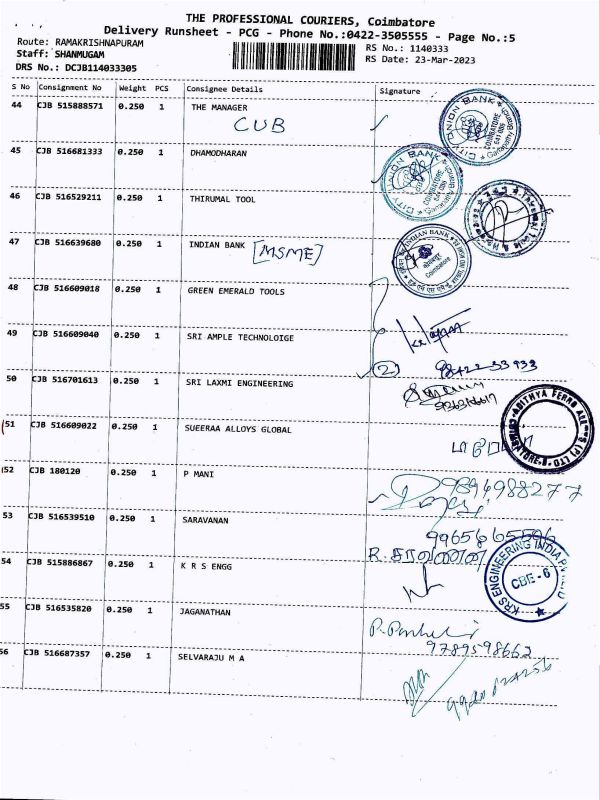 THE PROFESSIONAL COURIERS, Coimbatore
Delivery Runsheet - PCG - Phone No.:0422-3505555 - Page No.:5
Route: RAMAKRISHNAPURAM RS No.: 1140333
Staff: SHANMUGAM RS Date: 23-Mar-2023
DRS No.: DCJB114033305
S No Consignment No Weight PCS Consignee Details Signature
44 CJB 515888571 0.250 1 THE MANAGER
CUB
CITY UNION BANK COIMBATORE 641 006 Ganapathy Branch
45 CJB 516681333 0.250 1 DHAMODHARAN
CITY UNION BANK COIMBATORE
46 CJB 516529211 0.250 1 THIRUMAL TOOL
47 CJB 516639680 0.250 1 INDIAN BANK [MSME]
INDIAN BANK Coimbatore
48 CJB 516609018 0.250 1 GREEN EMERALD TOOLS
49 CJB 516609040 0.250 1 SRI AMPLE TECHNOLOIGE
(2) 98422-33933
50 CJB 516701613 0.250 1 SRI LAXMI ENGINEERING
51 CJB 516609022 0.250 1 SUEERAA ALLOYS GLOBAL
ADITHYA FERRO ALLOYS (P) LTD COIMBATORE-6
52 CJB 180120 0.250 1 P MANI
9894988277
53 CJB 516539510 0.250 1 SARAVANAN
R. சரவணன்
54 CJB 515886867 0.250 1 K R S ENGG
KRS ENGINEERING INDIA PVT LTD CBE-6
55 CJB 516535820 0.250 1 JAGANATHAN
9789598662
56 CJB 516687357 0.250 1 SELVARAJU M A